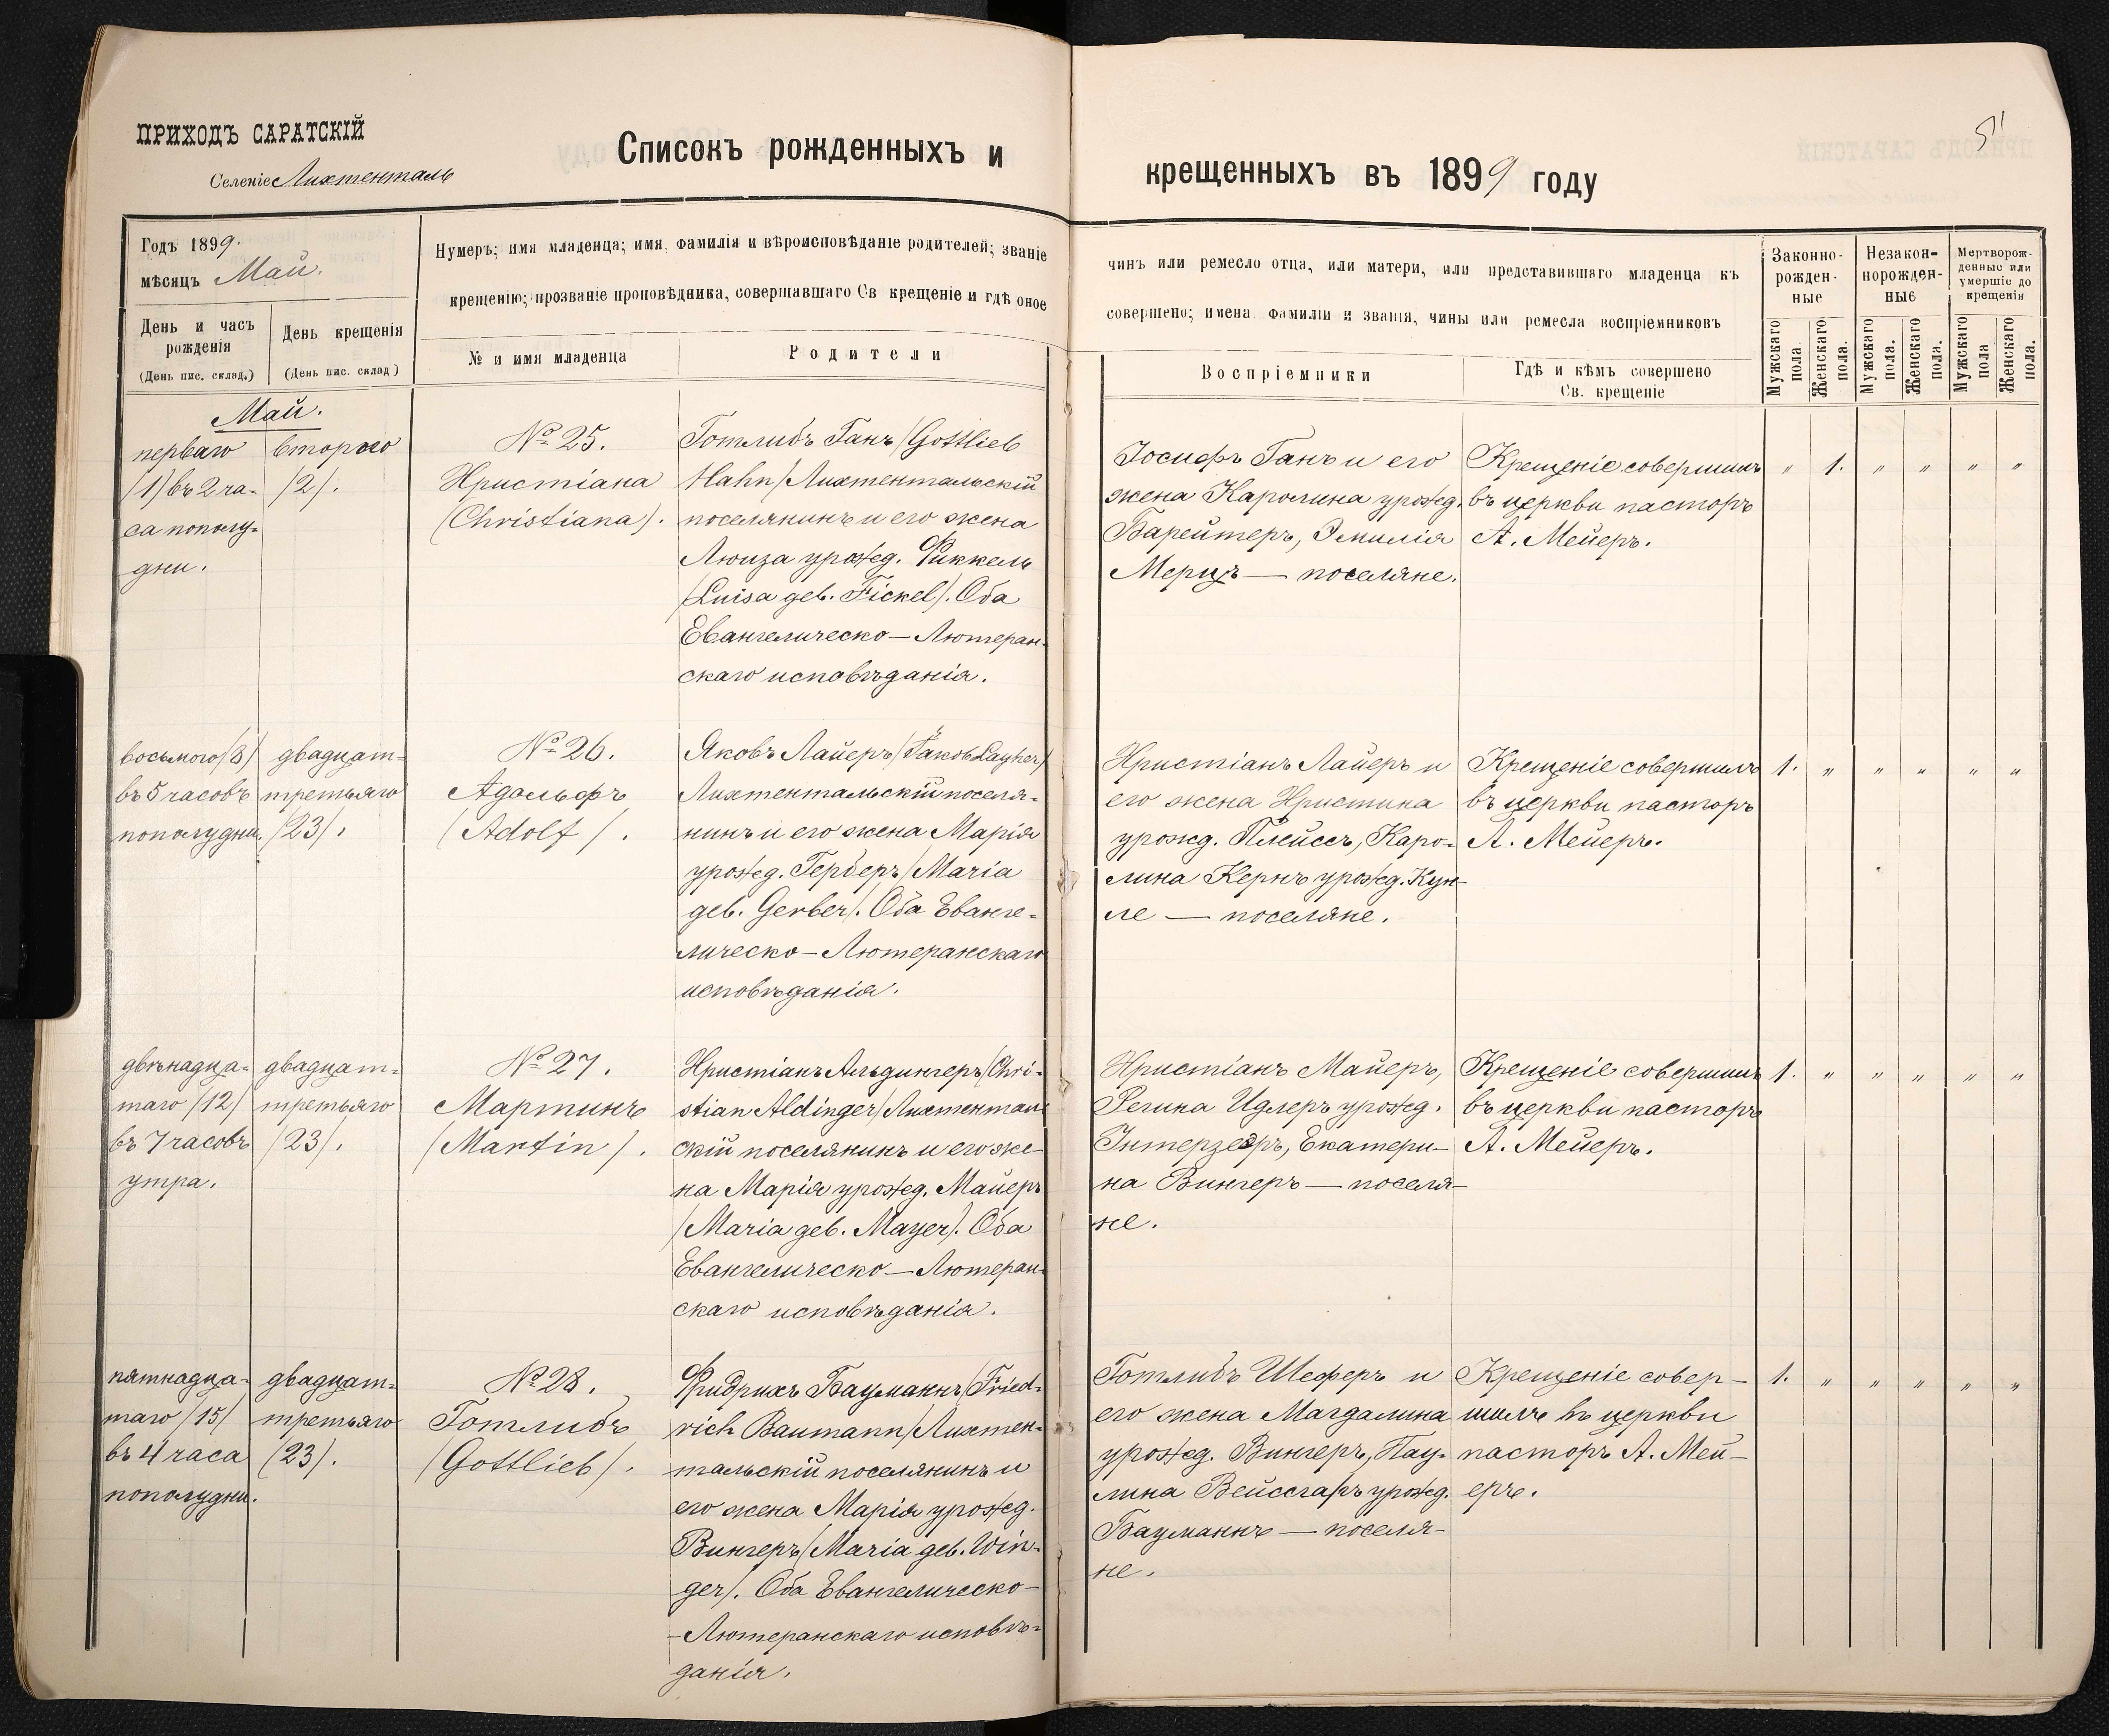 ПРИХОДЪ САРАТСКІЙ
Селеніе Лихтенталь
Списокъ рожденныхъ и
крещенныхъ въ 1899 году
51
Годъ 1899.
мѣсяцъ Май.
День и часъ рожденія
(День пис. склад.)
День крещенія
(День пис. склад)
Нумеръ; имя младенца; имя, фамилія и вѣроисповѣданіе родителей; званіе
крещенію; прозваніе проповѣдника, совершавшаго Св крещеніе и гдѣ оное
№ и имя младенца
Родители
чинъ или ремесло отца, или матери, или представившаго младенца къ
совершено; имена фамиліи и званія, чины или ремесла воспріемниковъ
Воспріемники
Гдѣ и кѣмъ совершено
Св. крещеніе
Законно-
рожден-
ные
Незакон-
норожден-
ные
Мертворож-
денные или
умершіе до
крещенія
Мужскаго пола
Женскаго пола.
Мужскаго пола.
Женскаго пола.
Мужскаго пола
Женскаго пола.
Май.
перваго
/1/ въ 2 ча-
са пополу-
дни.
второго
/2/.
№ 25.
Христіана
(Christiana).
Готлибъ Ганъ /Gottlieb
Hahn/ Лихтентальскій
поселянинъ и его жена
Люиза урожд. Фиккель
/Luisa geb. Fickel/. Оба
Евангелическо — Лютеран-
скаго исповѣданія.
Іосифъ Ганъ и его
жена Каролина урожд.
Барейтеръ, Эмилія
Мерцъ — поселяне.
Крещеніе совершилъ
въ церкви пасторъ
А. Мейеръ.
" 1. " " " "
восьмого /8/
въ 5 часовъ
пополудни.
двадцат-
третьяго
/23/.
№ 26.
Адольфъ
(Adolf/.
Яковъ Лайеръ /Jakob Layher/
Лихтентальскій поселя-
нинъ и его жена Марія
урожд. Герберъ /Maria
geb. Gerber/. Оба Еванге-
лическо — Лютеранскаго
исповѣданія.
Христіанъ Лайеръ и
его жена Христина
урожд. Плейссъ, Каро-
лина Кернъ урожд. Кун-
ле — поселяне.
Крещеніе совершилъ
въ церкви пасторъ
А. Мейеръ.
1. " " " " "
двѣнадца-
таго /12/
въ 7 часовъ
утра.
двадцат-
третьяго
/23/.
№ 27.
Мартинъ
/Martin/.
Христіанъ Альдингеръ /Chri-
stian Aldinger/ Лихтенталь-
скій поселянинъ и его же-
на Марія урожд. Майеръ
/Maria geb. Mayer/. Оба
Евангелическо — Лютеран-
скаго исповѣданія.
Христіанъ Майеръ,
Регина Идлеръ урожд.
Інтерзееръ, Екатери-
на Вингеръ — поселя-
не.
Крещеніе совершилъ
въ церкви пасторъ
А. Мейеръ.
1. " " " " "
пятнадца-
таго /15/
въ 4 часа
пополудни.
двадцат-
третьяго
(23/.
№ 28.
Готлибъ
/Gottlieb/.
Фридрихъ Бауманнъ /Fried-
rich Baumann/ Лихтен-
тальскій поселянинъ и
его жена Марія урожд.
Вингеръ /Maria geb. Win-
ger/. Оба Евангелическо —
- Лютеранскаго исповѣ-
данія.
Готлибъ Шеферъ и
его жена Магдалина
урожд. Вингеръ, Пау-
лина Вейссгаръ урожд.
Бауманнъ — поселя-
не.
Крещеніе совер-
шилъ въ церкви
пасторъ А. Мей-
еръ.
1. " " " " "